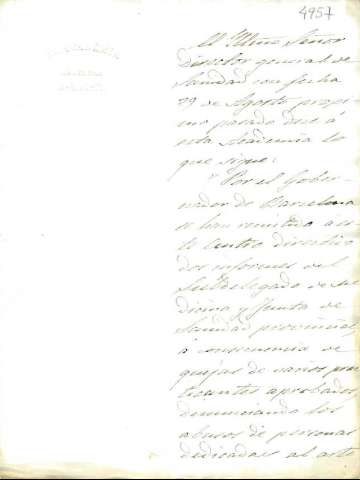 4957
El Ilmo Señor
Director general de
Sanidad con fecha
29 de Agosto proxi-
mo pasado dice á
esta Academia lo
que sigue:
"Por el Gober-
nador de Barcelona
se han remitido á es-
te Centro directivo
dos informes del
Subdelegado de Me-
dicina y Junta de
Sanidad provincial,
á consecuencia de
quejas de varios prac-
ticantes aprobados,
denunciando los
abusos de personas
dedicadas al arte